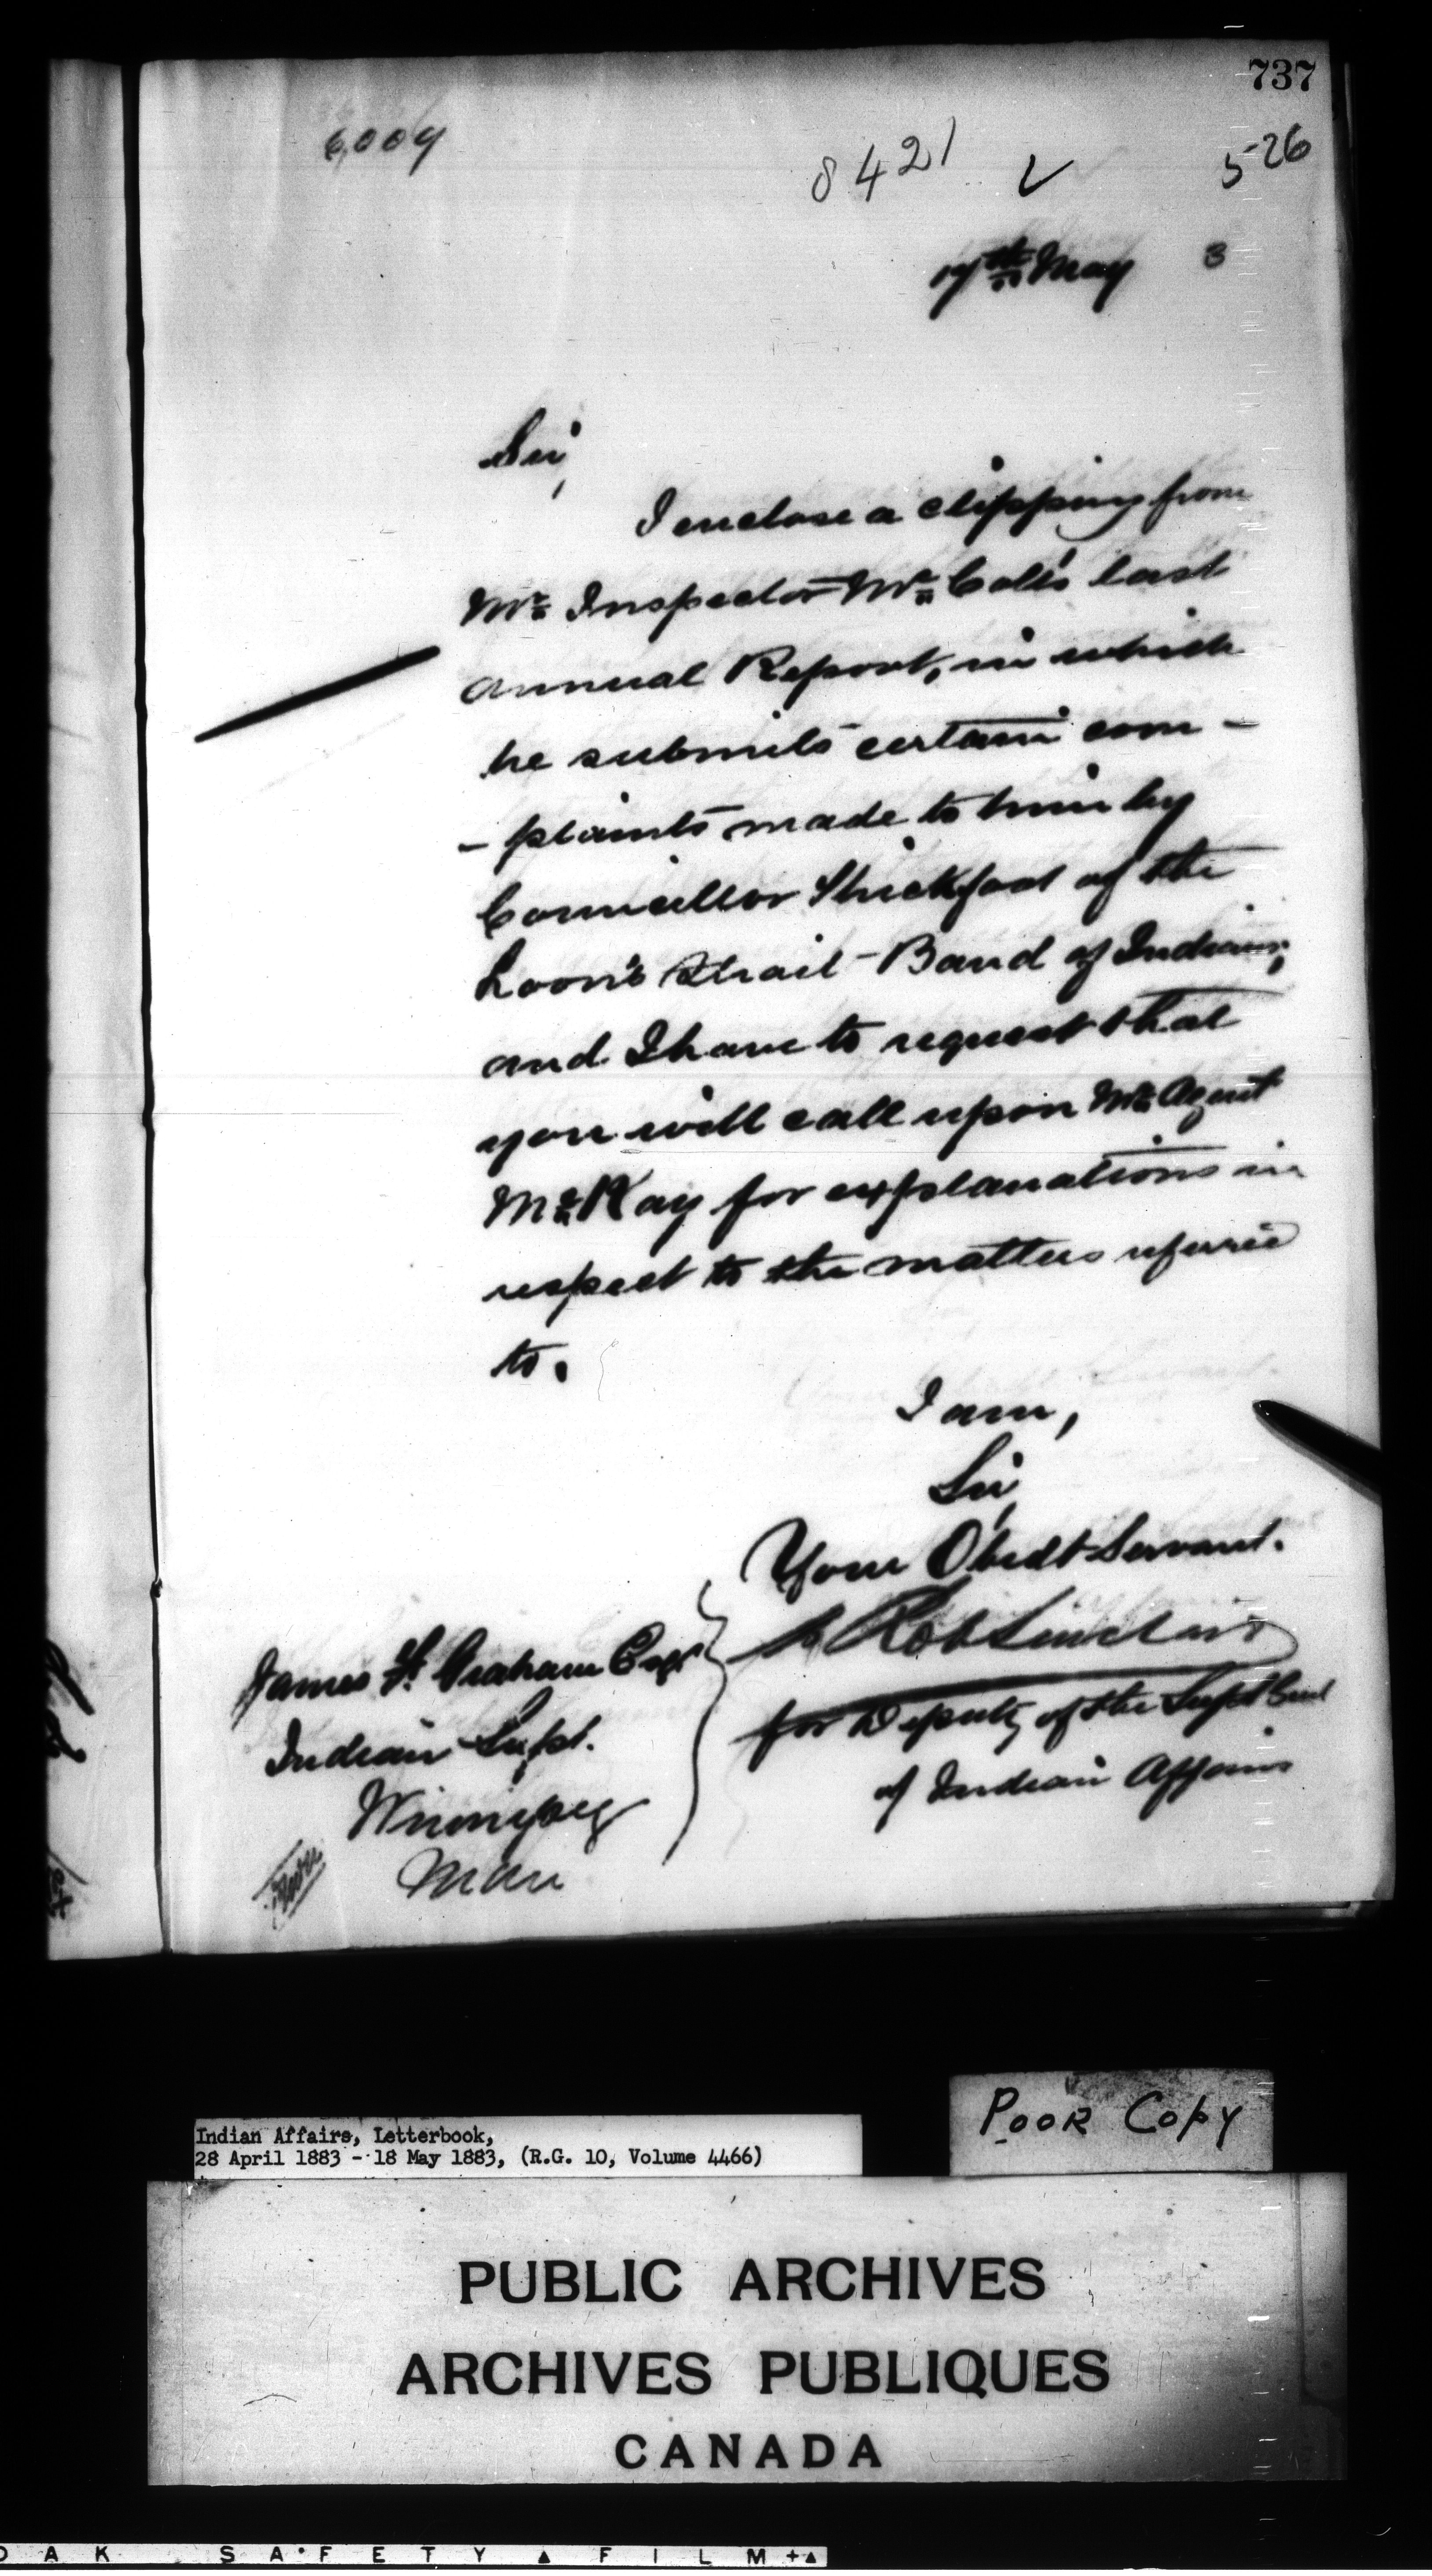 737
6,009
8421 ✓
526
17th May 3
Sir,
I enclose a clipping from
Mr. Inspector McColl's last
annual Report, in which
he submits certain com-
-plaints made to him by
Councillor Thickfoot of the
Loon's Strait Band of Indians,
and I have to request that
you will call upon Mr. Agent
McKay for explanations in
respect to the matters referred
to.
I am,
Sir,
Your Obedt Servant.
Rob Sinclair
for Deputy of the Supt Genl
of Indian Affairs
James F. Graham Esqr
Indian Supt.
Winnipeg
Man
Indian Affairs, Letterbook,
28 April 1883 - 18 May 1883, (R.G. 10, Volume 4466)
POOR COPY
PUBLIC ARCHIVES
ARCHIVES PUBLIQUES
CANADA
DAK SAFETY FILM